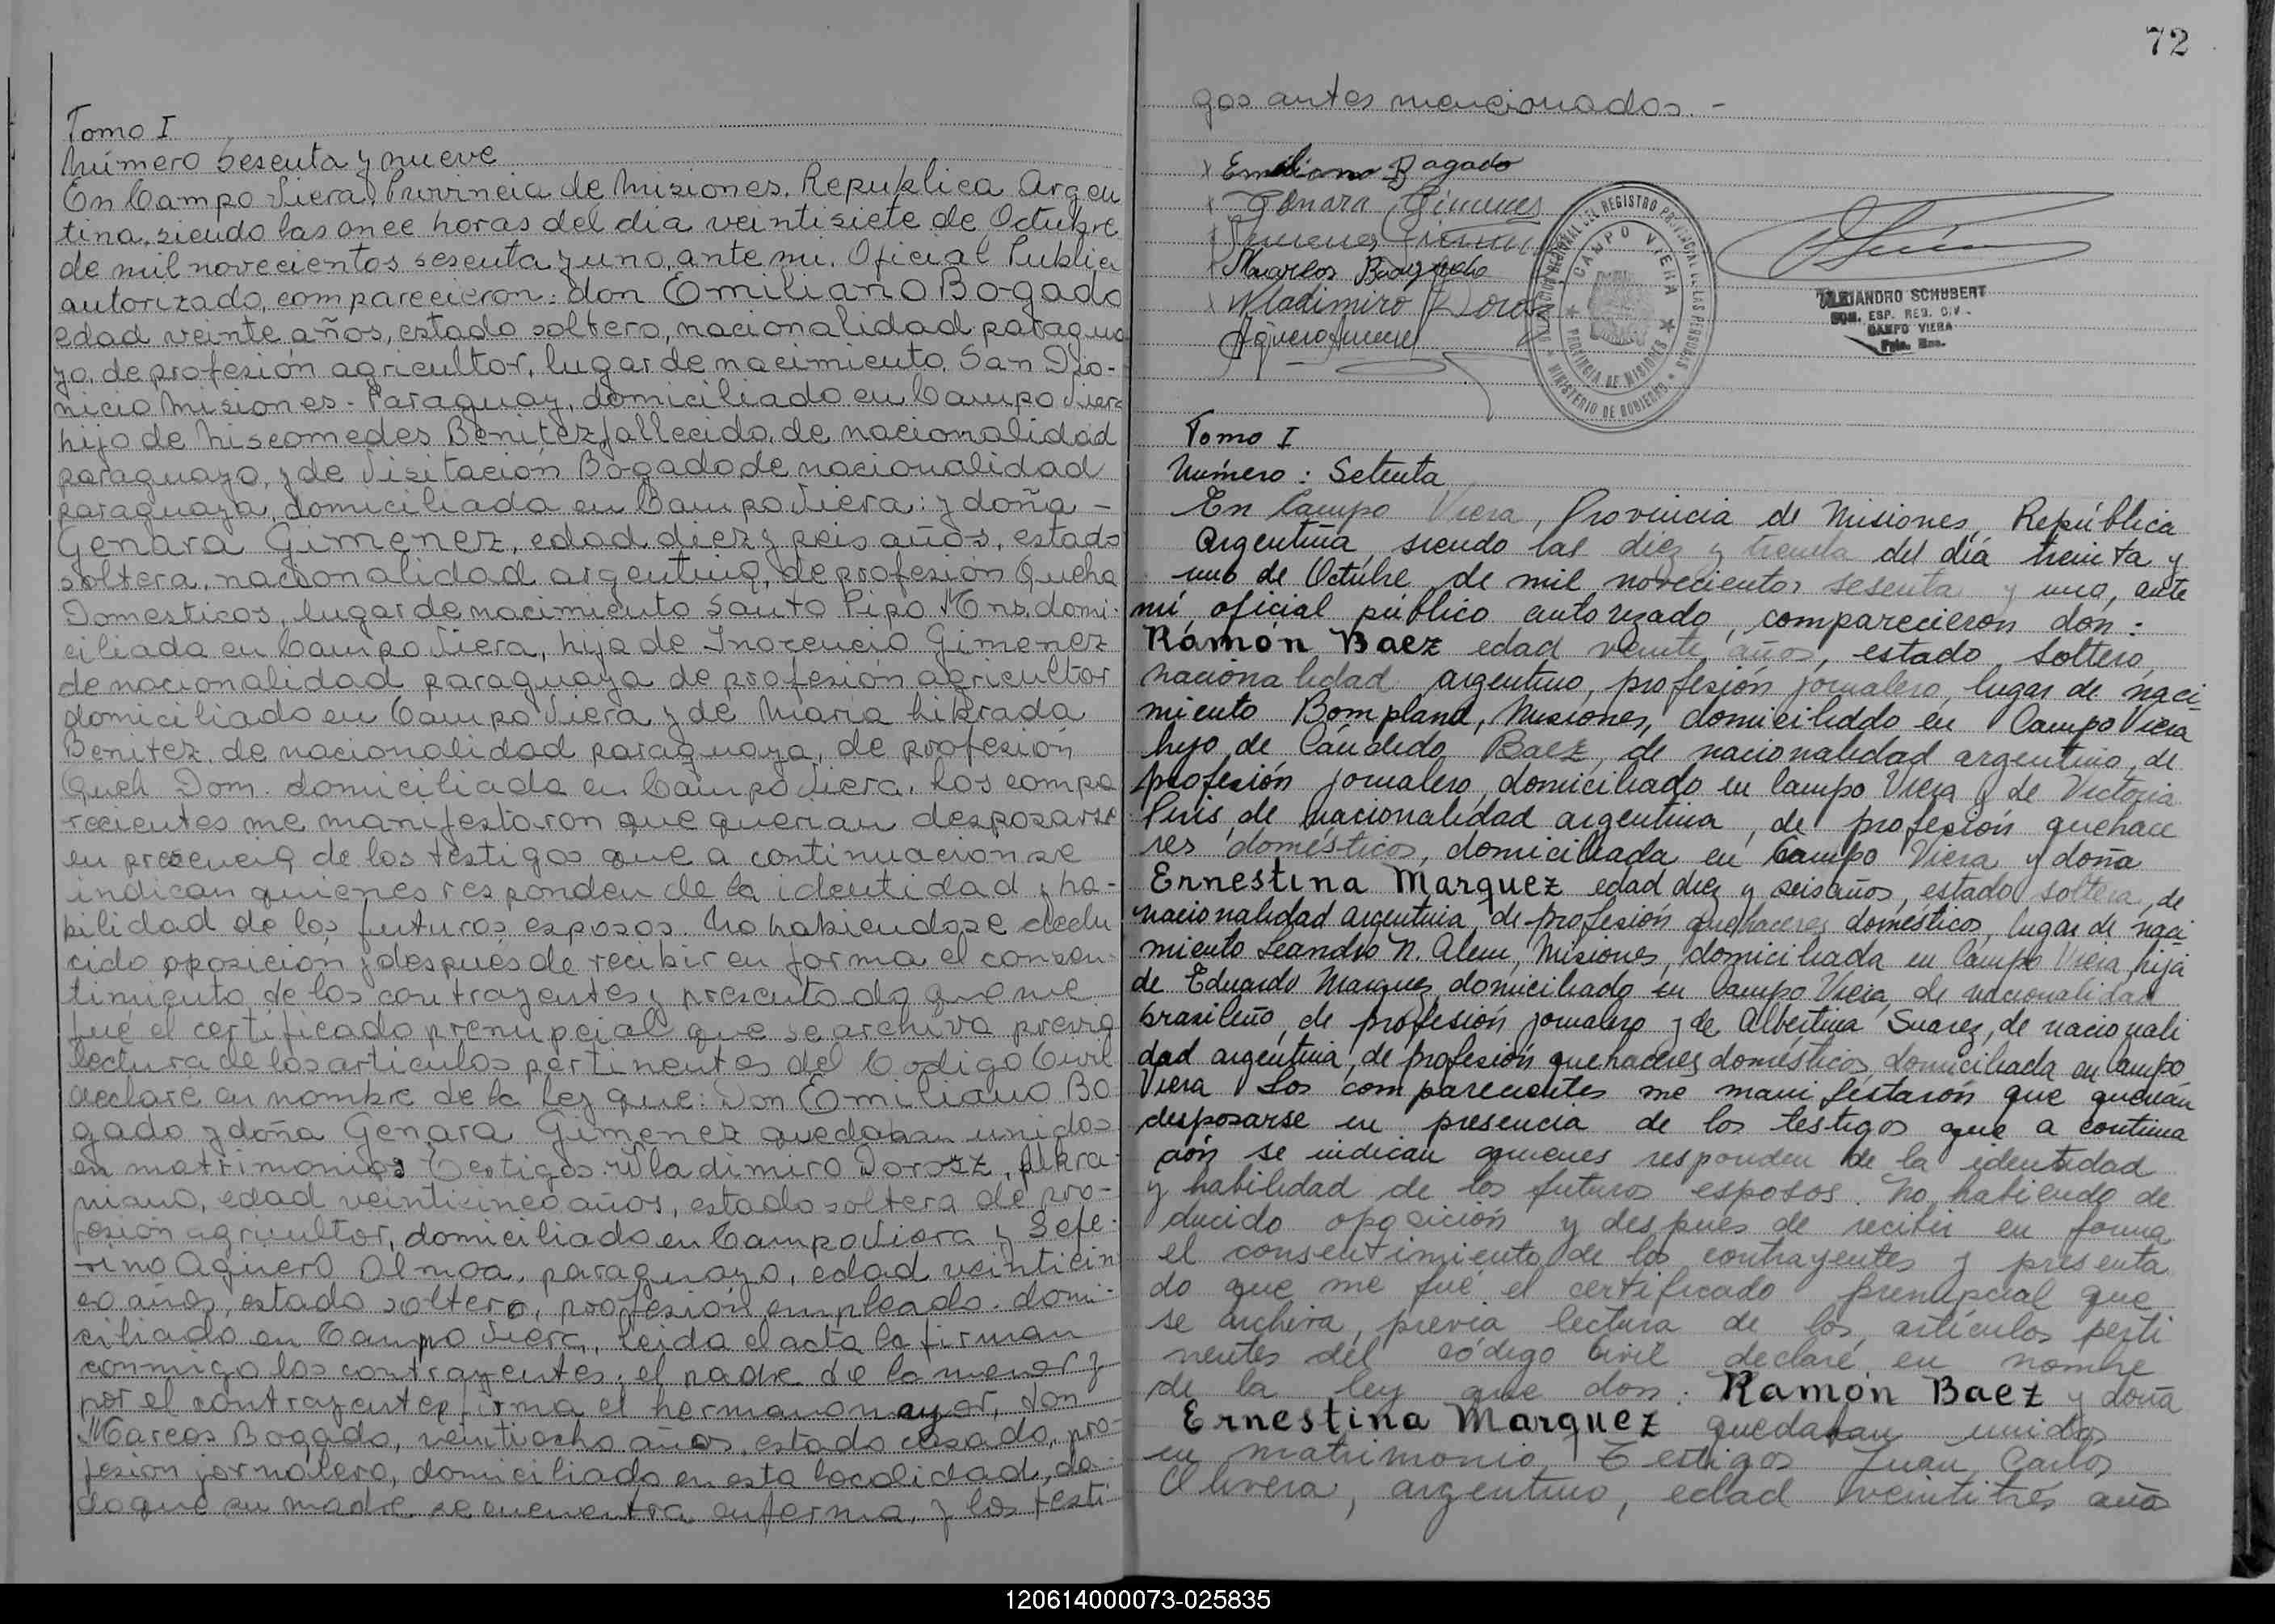 Tomo I
Número Sesenta y nueve
En Campo Viera, Provincia de Misiones, Republica Argen
tina, siendo las once horas del dia veintisiete de Octubre
de mil novecientos sesenta y uno, ante mi. Oficial Public
autorizado, comparecieron: don Emiliano Bogado
edad veinte años, estado soltero, nacionalidad paragua
yo, de profesión agricultor, lugar de nacimiento, San Dio-
nicio Misiones - Paraguay, domiciliado en Campo Viera
hijo de Niscomedes Benitez, fallecido, de nacionalidad
paraguayo, y de Visitación Bogado de nacionalidad
paraguaya, domiciliada en Campo Viera: y doña -
Genara Gimenez, edad diez y seis años, estado
soltera, nacionalidad argentina, de profesión Queha
Domesticos, lugar de nacimiento Santo Pipo Mns. domi-
ciliada en Campo Viera, hija de Inocencio Gimenez
de nacionalidad paraguaya de profesión agricultor
domiciliado en Campo Viera y de Maria Librada
Benitez, de nacionalidad paraguaya, de profesión
Queh Dom. domiciliada en Campo Viera. Los compa
recientes me manifestaron que querian desposarse
en presencia de los testigos que a continuacion se
indican quienes responden de la identidad y ha-
bilidad de los futuros esposos. No habiendose dedu
cido oposición y después de recibir en forma el consen-
timiento de los contrayentes y presentado que me
fué el certificado prenupcial que se archiva previa
lectura de los articulos pertinentes del Codigo Civil
declare en nombre de la Ley que: Don Emiliano Bo
gado y doña Genara Gimenez quedaban unidos
en matrimonio: Testigos: Wladimiro Dorosz, ukra-
niano, edad veinticinco años, estado soltero de pro-
fesión agricultor, domiciliado en Campo Viera y Sefe-
rino Aguero Almoa, paraguayo, edad veinticin
co años, estado soltero, profesión empleado. domi-
ciliado en Campo Viera, leida el acta la firman
conmigo los contrayentes, el padre de la menor y
por el contrayente firma el hermano mayor, don
Marcos Bogado, veintiocho años, estado casado, pro-
fesión jornalero, domiciliado en esta localidad, da-
do que su madre se encuentra enferma, y los testi
72
gos antes mencionados. -
x Emiliano Bogado
x Genara Gimenes
x Marcos Bogado
x Wladimiro Doros
Aguero
DELEGACION REGIONAL DEL REGISTRO PROVINCIAL DE LAS PERSONAS
CAMPO VIERA
PROVINCIA DE MISIONES
MINISTERIO DE GOBIERNO
ALEJANDRO SCHUBERT
ESP. REG. CIV.
CAMPO VIERA
Tomo I
Número : Setenta
En Campo Viera, Provincia de Misiones, República
Argentina, siendo las diez y treinta del día treinta y
uno de Octubre de mil novecientos sesenta y uno, ante
mí, oficial público autorizado, comparecieron don:
Ramón Baez edad veinte años, estado soltero,
nacionalidad argentino, profesión jornalero, lugar de naci-
miento Bompland, Misiones, domiciliado en Campo Viera
hijo de Cándido Baez, de nacionalidad argentino, de
profesión jornalero, domiciliado en Campo Viera y de Victoria
Piris, de nacionalidad argentina, de profesión quehace
res domésticos, domiciliada en Campo Viera y doña
Ernestina Marquez edad diez y seis años, estado soltera, de
nacionalidad argentina de profesión quehaceres domésticos, lugar de naci
miento Leandro N. Alem, Misiones, domiciliada en Campo Viera, hija
de Eduardo Marques, domiciliado en Campo Viera, de nacionalidad
brasileño, de profesión jornalero y de Albertina Suarez, de nacionali
dad argentina, de profesión quehaceres domésticos, domiciliada en Campo
Viera Los comparecientes me manifestarón que querían
desposarse en presencia de los testigos que a continua
ción se indican quienes responden de la identidad
y habilidad de los futuros esposos. No habiendo de
ducido oposición y despues de recibir en forma
el consentimiento de los contrayentes y presenta
do que me fué el certificado prenupcial que
se archiva, previa lectura de los artículos perti
nentes del código Civil declaré en nombre
de la ley que don: Ramón Baez y doña
Ernestina Marquez quedaban unidos
en matrimonio. Testigos Juan Carlos
Olivera, argentino, edad veintitrés años
120614000073-025835